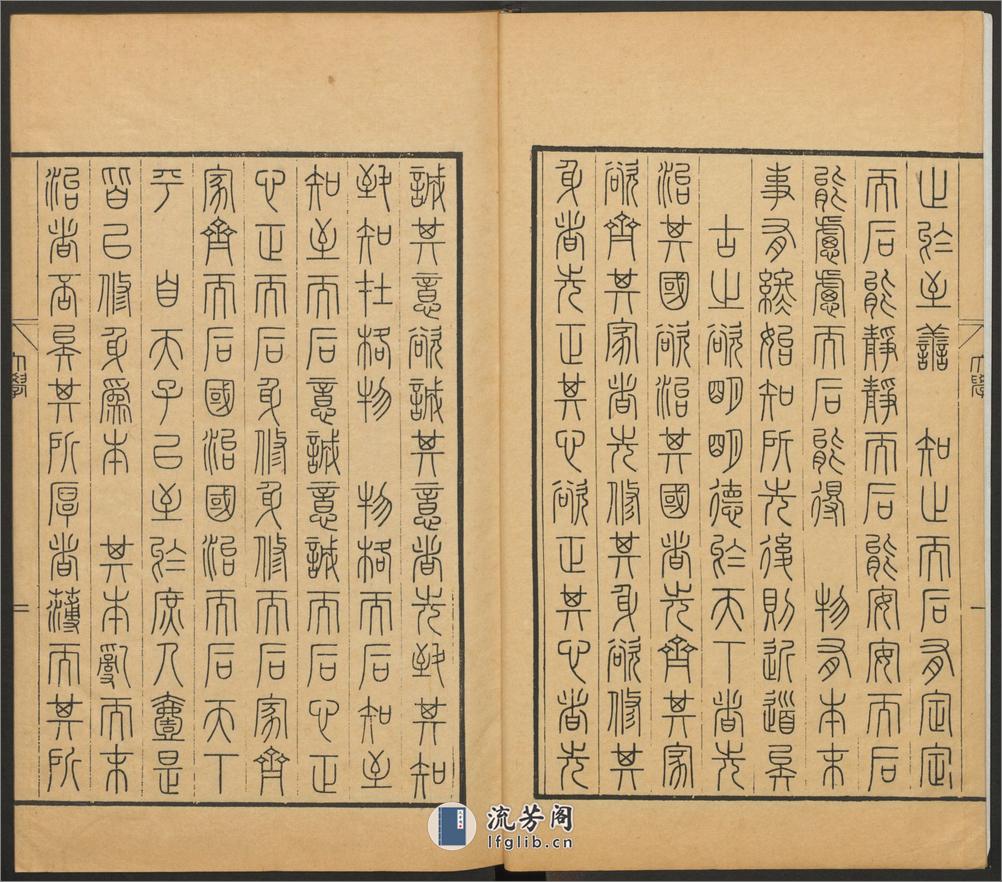 大學
一
止於至善 知止而后有定定
而后能靜靜而后能安安而后
能慮慮而后能得 物有本末
事有終始知所先後則近道矣
古之欲明明德於天下者先
治其國欲治其國者先齊其家
欲齊其家者先修其身欲修其
身者先正其心欲正其心者先
誠其意欲誠其意者先致其知
致知在格物 物格而后知至
知至而后意誠意誠而后心正
心正而后身修身修而后家齊
家齊而后國治國治而后天下
平 自天子以至於庶人壹是
皆以修身爲本 其本亂而末
治者否矣其所厚者薄而其所
大學
二
流芳阁
lfglib.cn